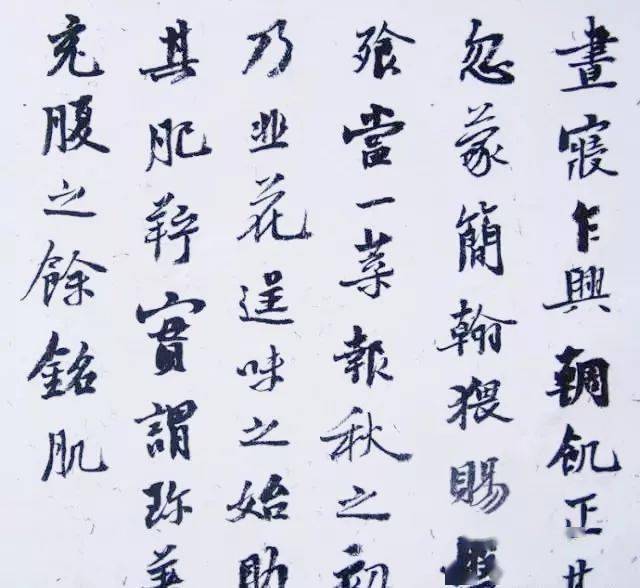 晝寢乍興輖飢正甚
忽蒙簡翰猥賜
飧當一葉報秋之初
乃韭花逞味之始助
其肥羜實謂珍羞
充腹之餘銘肌